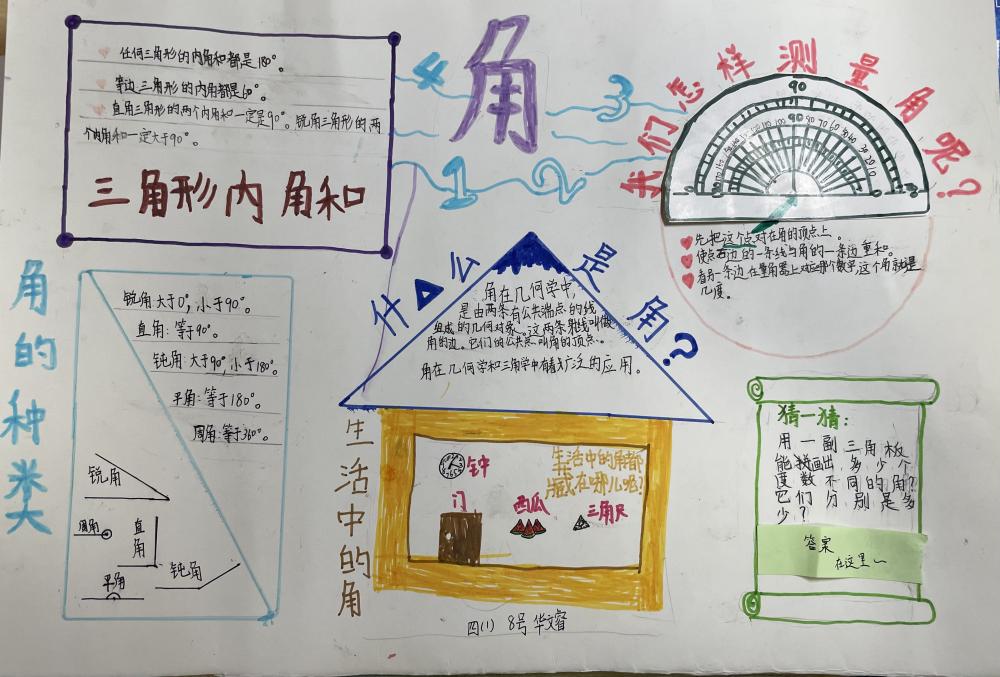 角
4
3
1
2
任何三角形的内角和都是180°。
等边三角形的内角都是60°。
直角三角形的两个内角和一定是90°。锐角三角形的两
个内角和一定大于90°。
三角形内角和
我们怎样测量角呢?
90
先把这个点对在角的顶点上。
使点右边的一条线与角的一条边重和。
看另一条边在量角器上对应哪个数字,这个角就是
几度。
角的种类
锐角大于0°,小于90°。
直角:等于90°。
钝角:大于90°,小于180°。
平角:等于180°。
周角:等于360°。
锐角
周角
直角
平角
钝角
什么是角?
角在几何学中,
是由两条有公共端点的线
组成的几何对象。这两条射线叫做
角的边。它们的公共点叫角的顶点。
角在几何学和三角学中有着广泛的应用。
生活中的角
生活中的角都
藏在哪儿呢?
钟
门
西瓜
三角尺
四(1) 8号 华文睿
猜一猜:
用一副三角板
能画出多少个
度数不同的角?
它们分别是多
少?
答案
在这里~